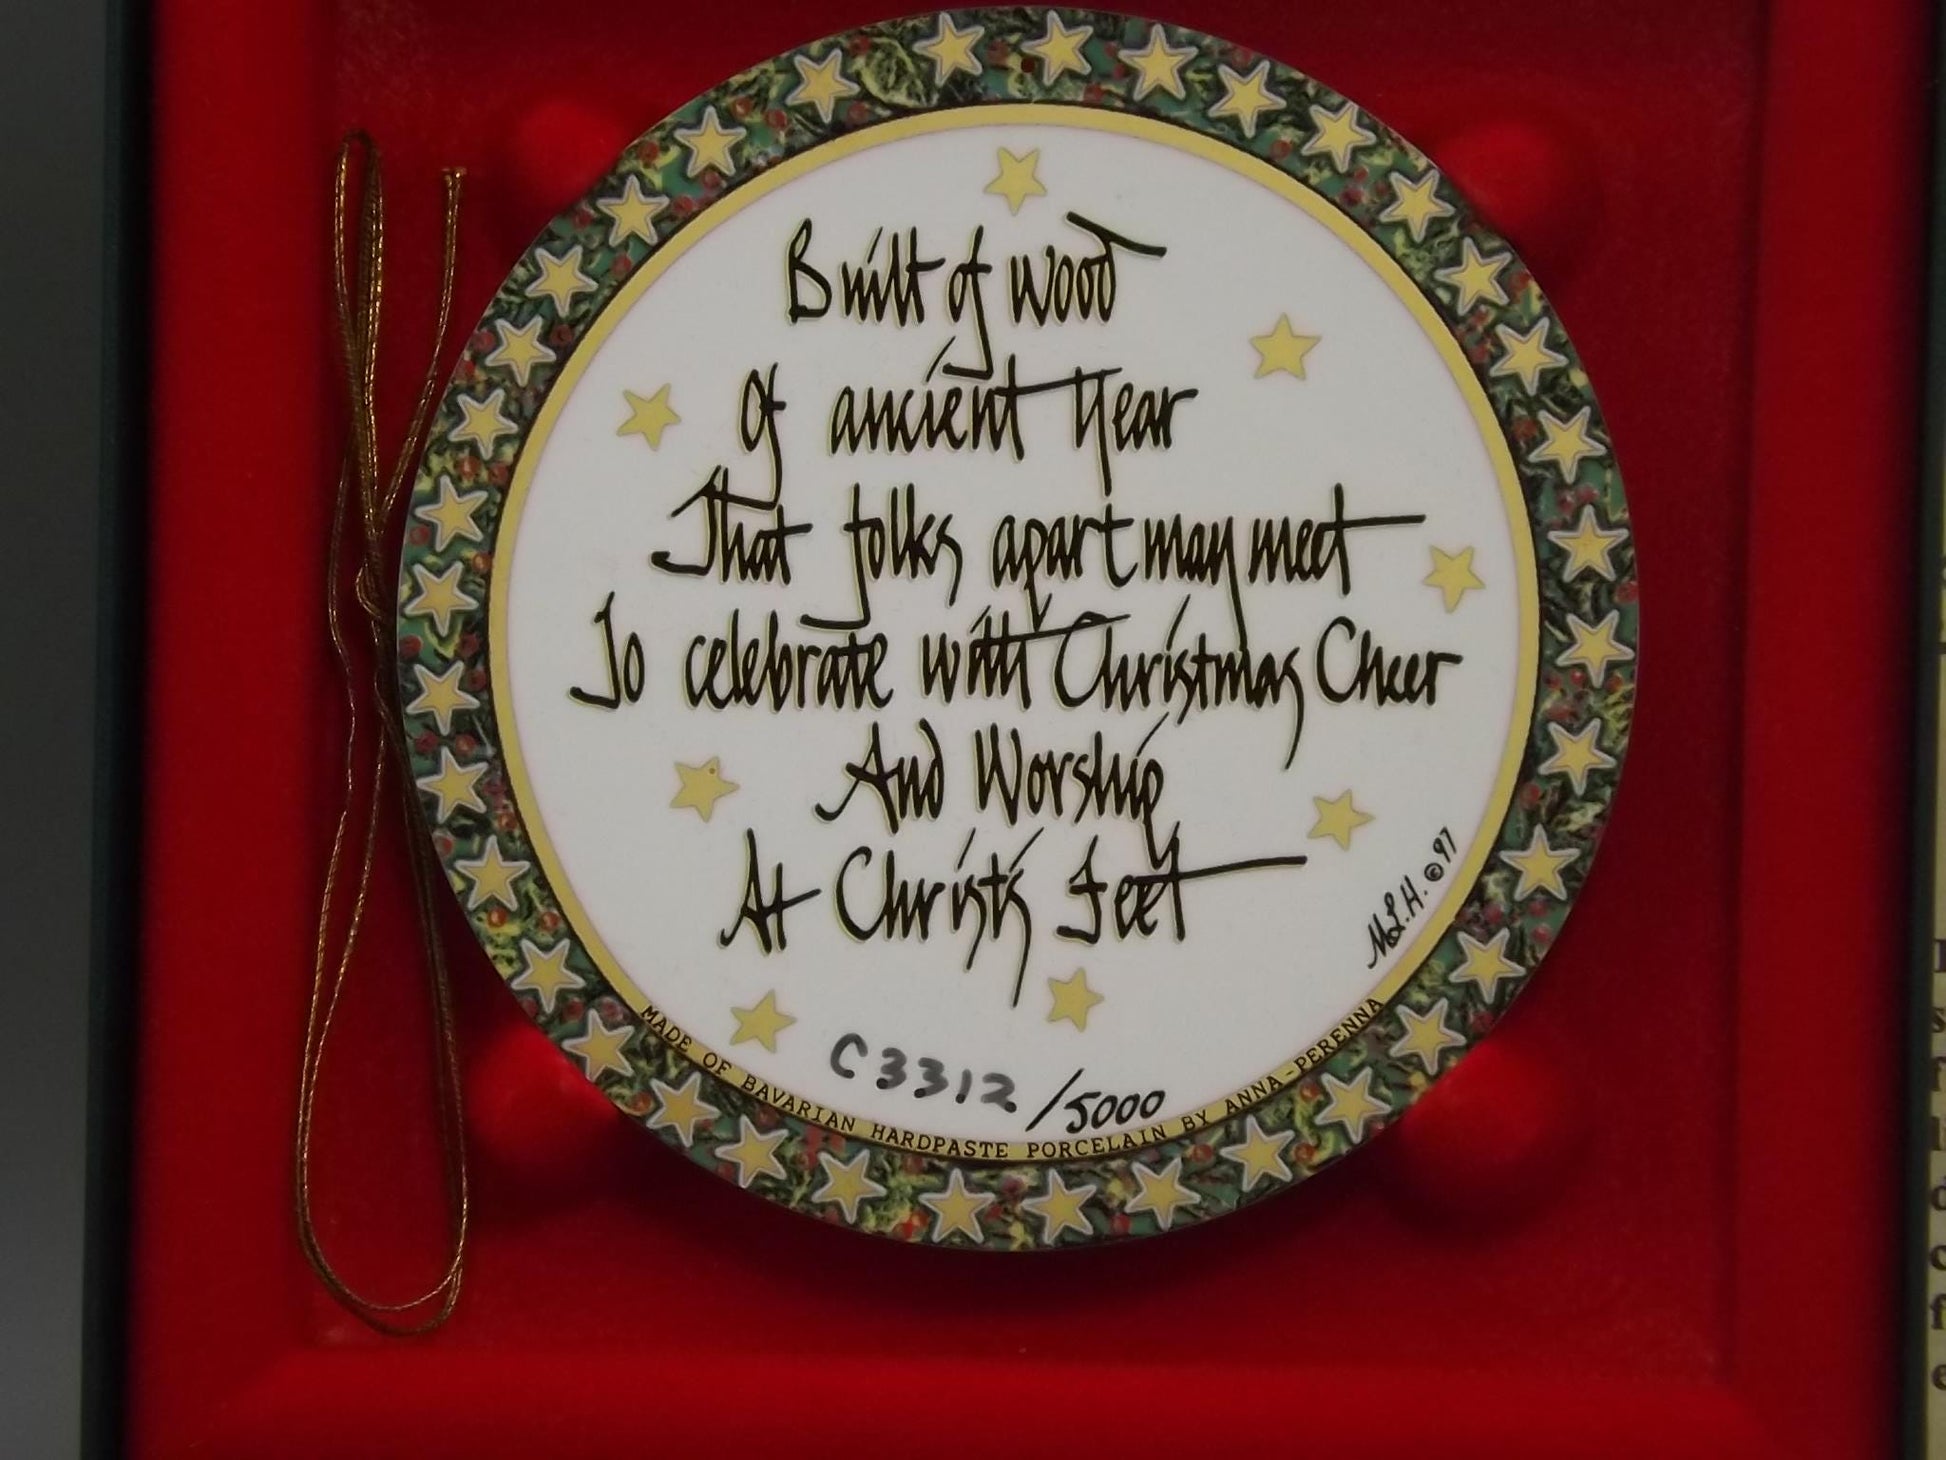 Built of wood
Of ancient Year
That folks apart may meet
To celebrate with Christmas Cheer
And Worship
At Christ's Feet
M.L.H. © 97
C3312/5000
MADE OF BAVARIAN HARDPASTE PORCELAIN BY ANNA-PERENNA